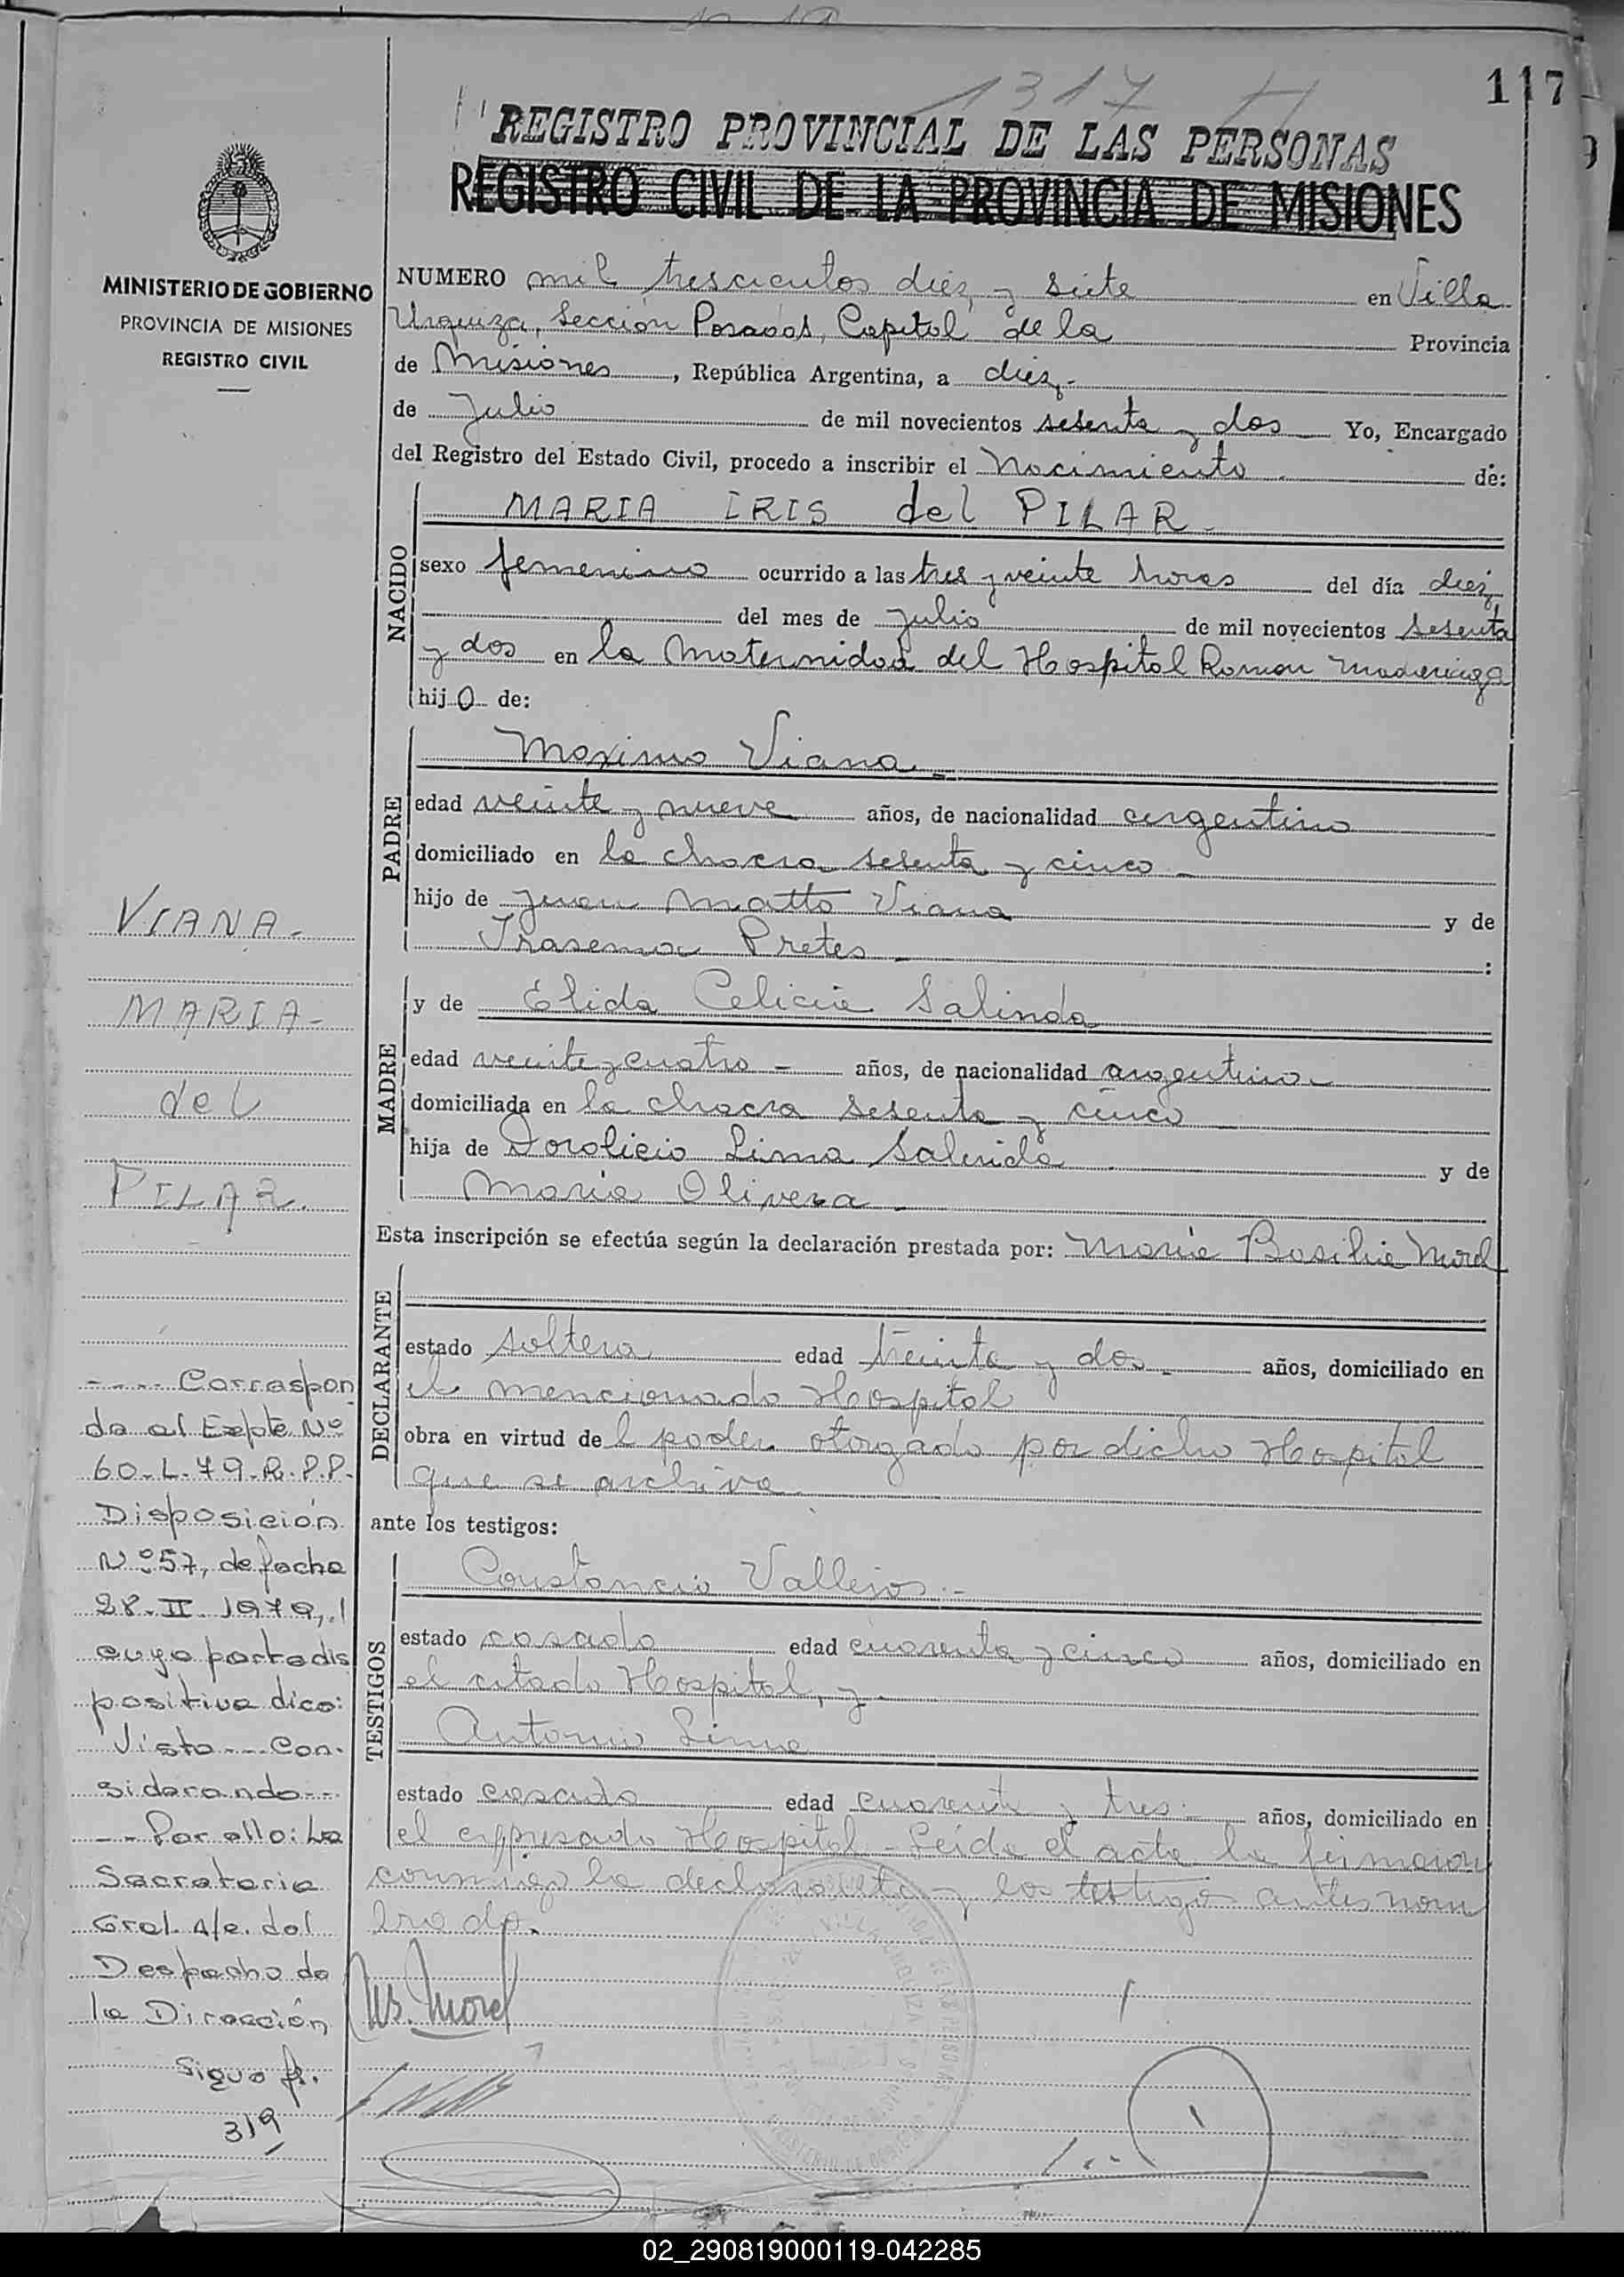 1317
117
REGISTRO PROVINCIAL DE LAS PERSONAS
REGISTRO CIVIL DE LA PROVINCIA DE MISIONES
MINISTERIO DE GOBIERNO
PROVINCIA DE MISIONES
REGISTRO CIVIL
NUMERO mil trescientos diez y siete en Villa
Urquiza, Sección Posadas, Capital de la Provincia
de Misiones, República Argentina, a diez.-
de Julio de mil novecientos sesenta y dos Yo, Encargado
del Registro del Estado Civil, procedo a inscribir el Nacimiento de:
NACIDO
MARIA IRIS del PILAR-
sexo femenino ocurrido a las tres y veinte horas del día diez
del mes de Julio de mil novecientos sesenta
y dos en la Maternidad del Hospital Ramon Madariaga
hijo de:
PADRE
Maximo Viana-
edad veinte y nueve años, de nacionalidad argentino
domiciliado en la chacra sesenta y cinco-
hijo de Juan Matto Viana y de
Pretes- :
MADRE
y de Elida Celicia Salinda
edad veinte y cuatro- años, de nacionalidad argentina
domiciliada en la chacra sesenta y cinco
hija de Lima y de
Maria Olivera-
Esta inscripción se efectúa según la declaración prestada por: Maria Basilia Morel
DECLARANTE
estado soltera edad treinta y dos- años, domiciliado en
el mencionado Hospital
obra en virtud del poder otorgado por dicho Hospital
que se archiva
ante los testigos:
TESTIGOS
Constancio Vallejos.-
estado casado edad cuarenta y cinco años, domiciliado en
el citado Hospital, y-
Antonio Lima
estado casado edad cuarenta y tres- años, domiciliado en
el expresado Hospital- Leida el acta la firmaron
conmigo la declarante y los testigos antes nom
brado.
Ms. Morel
VIANA-
MARIA-
del
PILAR.
---- Correspon
de al Expte Nº
60-L-79-R.P.P.
Disposición
Nº 57, de fecha
28-II-1979,
cuya parte dis
positiva dice:
Visto --- Con-
siderando---
-- Por ello: La
Secretaria
Gral. A/c. del
Despacho de
la Dirección
Sigue fs.
319
02_290819000119-042285